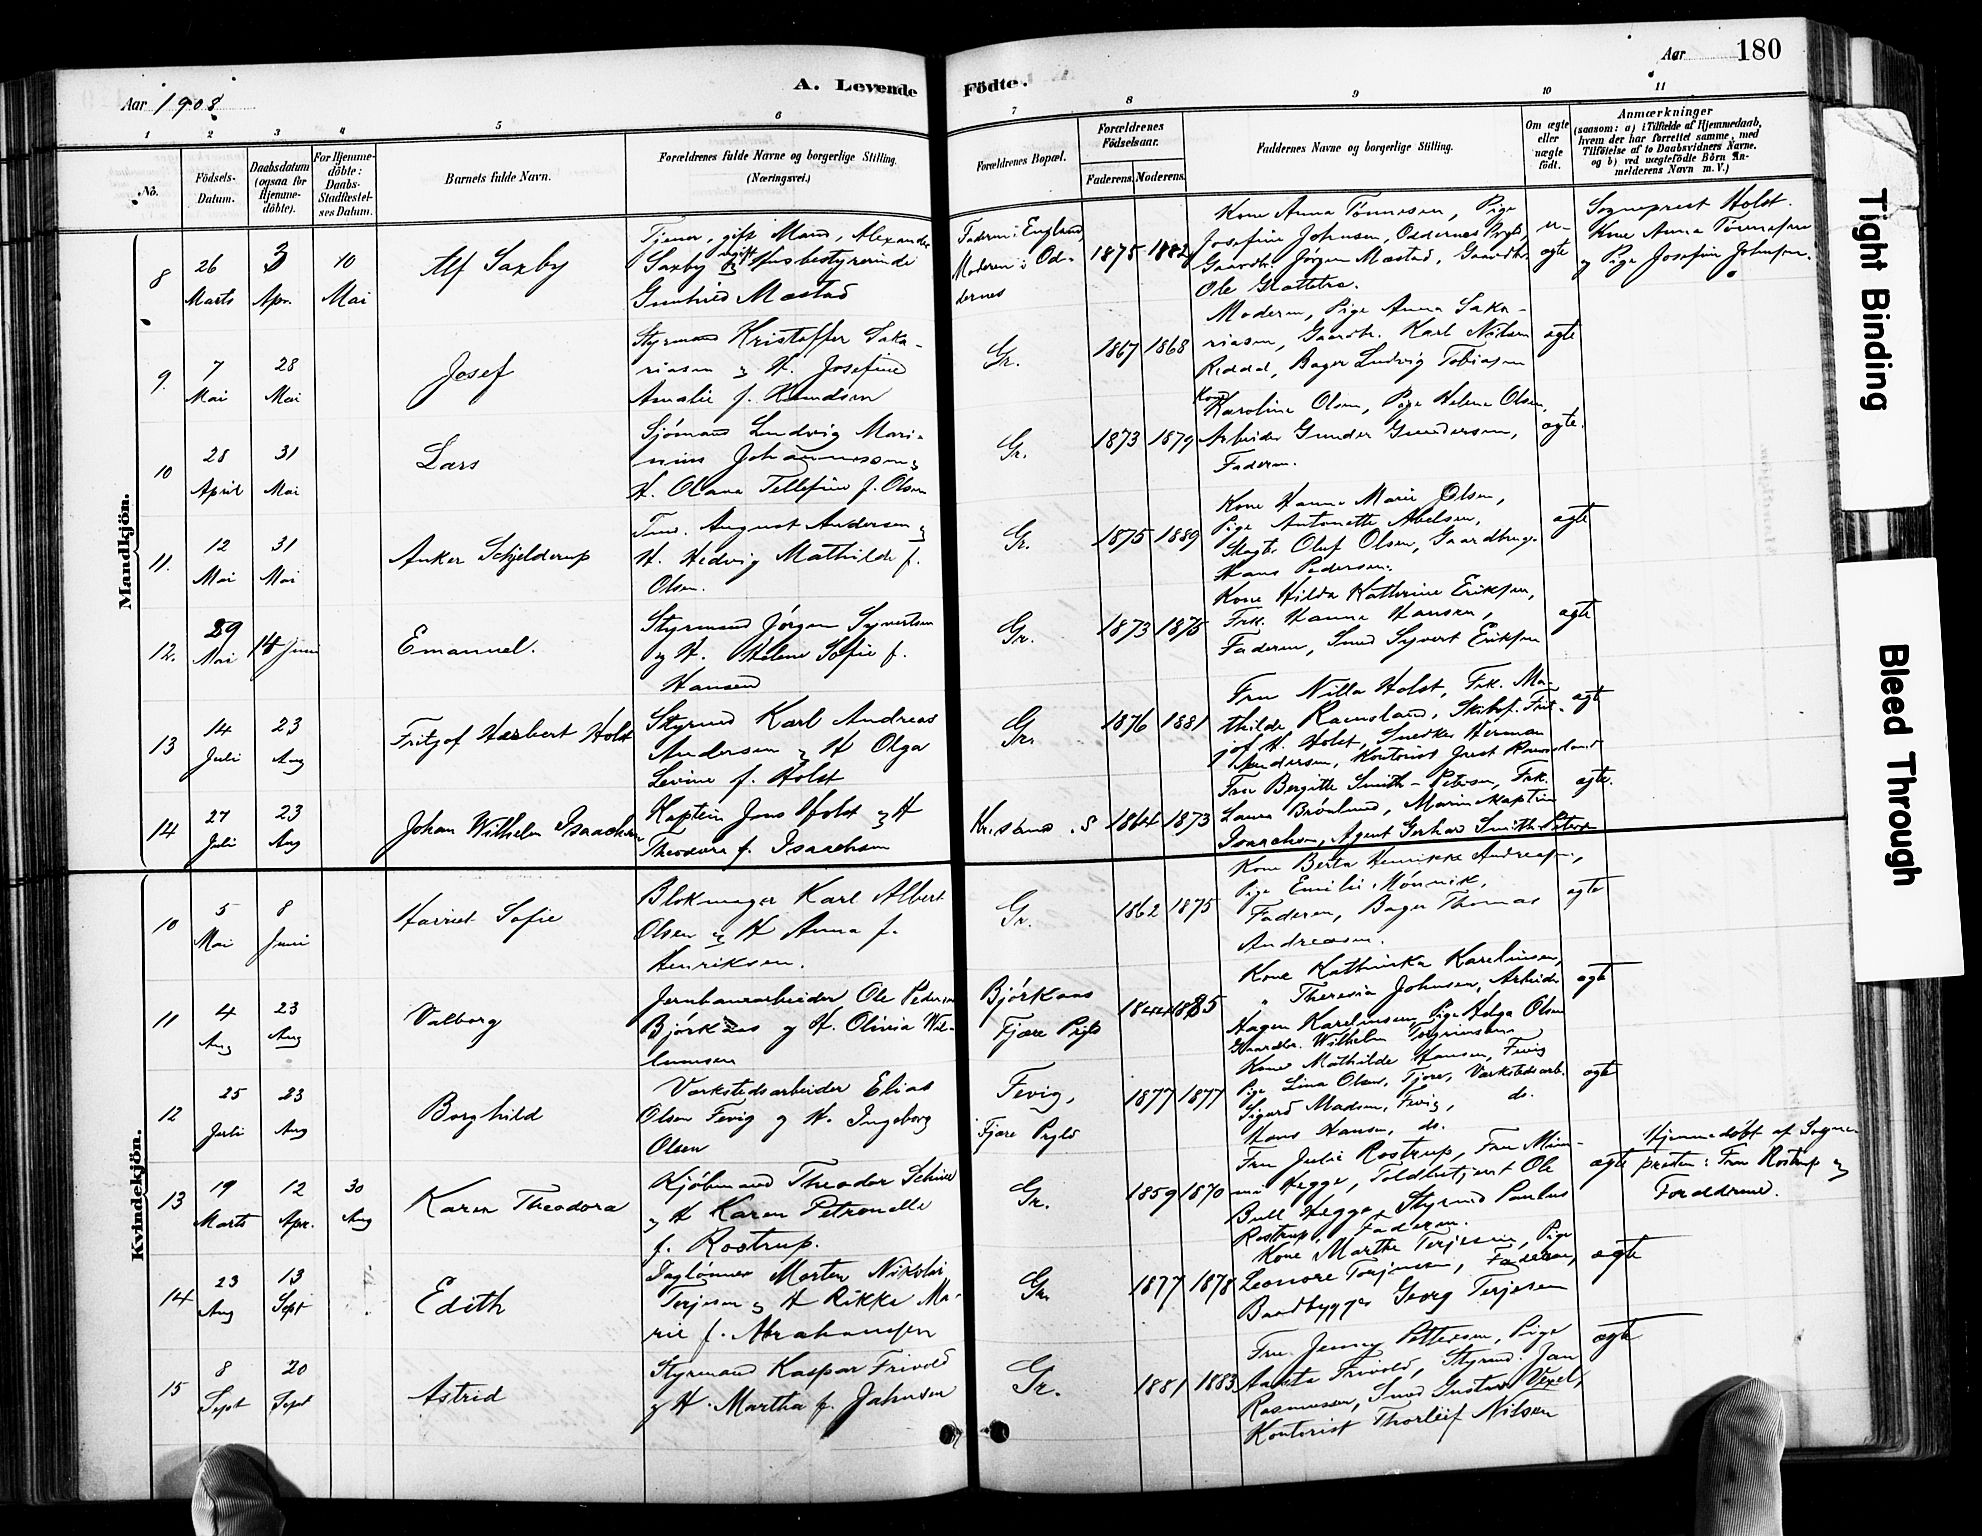 Aar 1908
A. Levende
Födte.
Aar 180
1 2 3 4 5 6 7 8 9 10 11
No.
Födsels-Datum.
Daabsdatum (ogsaa for Hjemme-döbte).
For Hjemme-döbte: Daabs-Stadfæstel-ses Datum.
Barnets fulde Navn.
Forældrenes fulde Navne og borgerlige Stilling. (Næringsvei.)
Forældrenes Bopæl.
Forældrenes Födselsaar.
Faderens. Moderens.
Faddernes Navne og borgerlige Stilling.
Om ægte eller uægte födt.
Anmærkninger
(saasom: a) i Tilfælde af Hjemmedaab,
hvem der har forrettet samme, med
Tilföielse af to Daabsvidners Navne.
og b) ved uægtefödte Börn An-
melderens Navn m. V.)
Mandkjön.
8
26 Marts
3 Apr.
10 Mai
Alf Saxby
Tjener, gift Mand, Alexander
Saxby og ugift Husbestyrerinde
Gunhild Mæstad
Faderen i England,
Moderen i Od-
dernes
1875 1882
Kone Anna Tönnesen, Pige
Josefine Johnsen, Oddernes Prgld,
Gaardbr. Jörgen Mæstad, Gaardbr.
Ole Grotteta.
u-
ægte
Sogneprest Holst.
Kone Anna Tönnesen
og Pige Josefine Johnsen.
9.
7 Mai
28 Mai
Josef
Styrmand Kristoffer Saka-
riasen og H. Josefine
Amalie f. Knudsen
Gr.
1867 1868
Moderen, Pige Anna Saka-
riasen, Gaardbr. Karl Nilsen
Reddal, Bager Ludvig Tobiasen
ægte
10
28 April
31 Mai
Lars
Sjömand Ludvig Mari-
nius Johannessen og
H. Olava Tellefine f. Olsen
Gr.
1873 1879
Kone Karoline Olsen, Pige Helene Olsen,
Arbeider Gunder Gundersen,
Faderen.
ægte.
11.
12 Mai
31 Mai
Anker Schjelderup
Tmd. August Andersen og
H. Hedvig Mathilde f.
Olsen.
Gr.
1875 1889
Kone Hanna Marie Olsen,
Pige Antonette Abelsen,
Slagter Oluf Olsen, Gaardbruger
Hans Pedersen.
ægte
12.
29 Mai
14 Juni
Emanuel.
Styrmand Jörgen Syvertsen
og H. Helene Sofie f.
Hansen
Gr.
1873 1876
Kone Hilda Kathrine Eriksen,
Frk. Hanna Hansen,
Faderen, Smed Syvert Eriksen
ægte
13
14 Juli
23 Aug
Fritjof Herbert Holst
Styrmd Karl Andreas
Andersen og H Olga
Levine f. Holst
Gr.
1876 1881
Fru Nilla Holst, Frk. Ma-
thilde Ravnsland, Skibsf. Frit-
jof H. Holst, Snedker Herman
Andersen, Kontorist Just Ravnsland
ægte
14
27 Juli
23 Aug
Johan Wilhelm Isaachsen
Kaptein Jens Holst og H
Theodora f. Isaachsen
Kristians. S
1864 1873
Fru Bergitte Smith-Petersen, Frk.
Laura Brönlund, Marinekaptein
Isaachsen, Agent Gerhard Smith-Petersen
ægte.
Kvindekjön.
10
5 Mai
8 Juni
Harriet Sofie
Blokmager Karl Albert
Olsen og H Anna f.
Henriksen.
Gr.
1862 1875
Kone Berta Henrikke Andreasen,
Pige Emilie Mönnik,
Faderen, Bager Thomas
Andreasen.
ægte
11
4 Aug
23 Aug
Valborg
Jernbanearbeider Ole Pedersen
Björkaas og H. Olivia Wil-
lumsen
Björkaas
Fjære Prgld
1844 1885
Kone Kathinka Karelinsen,
" Theresia Johnsen, Arbeider
Hagen Karelinsen, Pige Helga Olsen
Gaardbr. Wilhelm Torgrimsen
ægte
12
25 Juli
23 Aug
Borghild
Værkstedsarbeider Elias
Olsen Fevig og H. Ingeborg
Olsen
Fevig,
Fjære Prgld
1877 1877
Kone Mathilde Hansen, Fevig
Pige Lina Olsen, Fjære, Værkstedsarb.
Sigurd Madsen, Fevig, do.
Hans Hansen, do.
ægte
13
19 Marts
12 Apr.
30 Aug
Karen Theodora
Kjöbmand Theodor Schiver
og H Karen Petronelle
f. Rostrup.
Gr.
1859 1870
Fru Julie Rostrup, Fru Min-
na Hegge, Toldbetjent Ole
Bull Hegge, Styrmd Paulus
Rostrup, Faderen.
ægte
Hjemmedöbt af Sogne-
presten: Fru Rostrup og
Forældrene.
14
23 Aug
13 Sept
Edith
Daglönner Morten Nikolai
Terjesen og H Rikka Ma-
rie f. Abrahamsen
Gr.
1877 1878
Kone Marthe Terjesen, Pige
Leonore Terjesen, Faderen,
Baadbygger Georg Terjesen
ægte
15
8 Sept
20 Sept
Astrid
Styrmand Kaspar Frivold
og H. Martha f. Jahnsen
Gr.
1881 1883
Fru Jenny Pettersen, Pige
Aasta Frivold, Styrmd. Jan
Rasmussen, Smed Gustav Vexel,
Kontorist Thorleif Nilsen
ægte
Tight Binding
Bleed Through